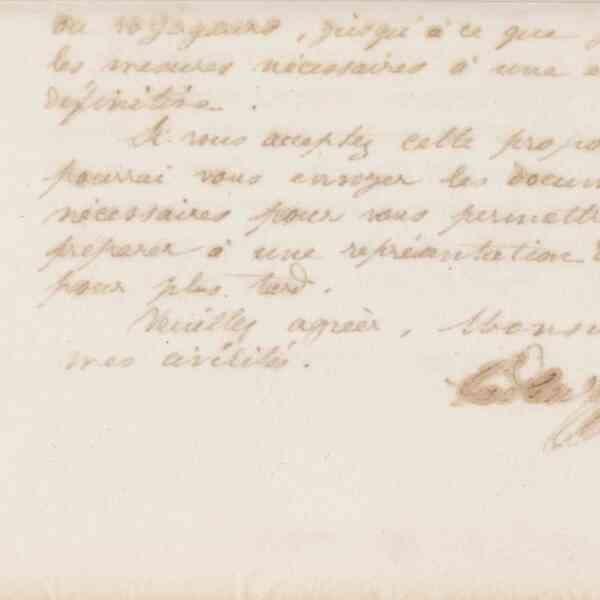 ou voyageurs, jusqu'à ce que
les mesures nécessaires à une
définitive.
Si vous acceptez cette propo
pourrai vous envoyer les docum
nécessaires pour vous permettr
préparer à une représentation
pour plus tard.
Veuillez agréer, Monsi
mes civilités.